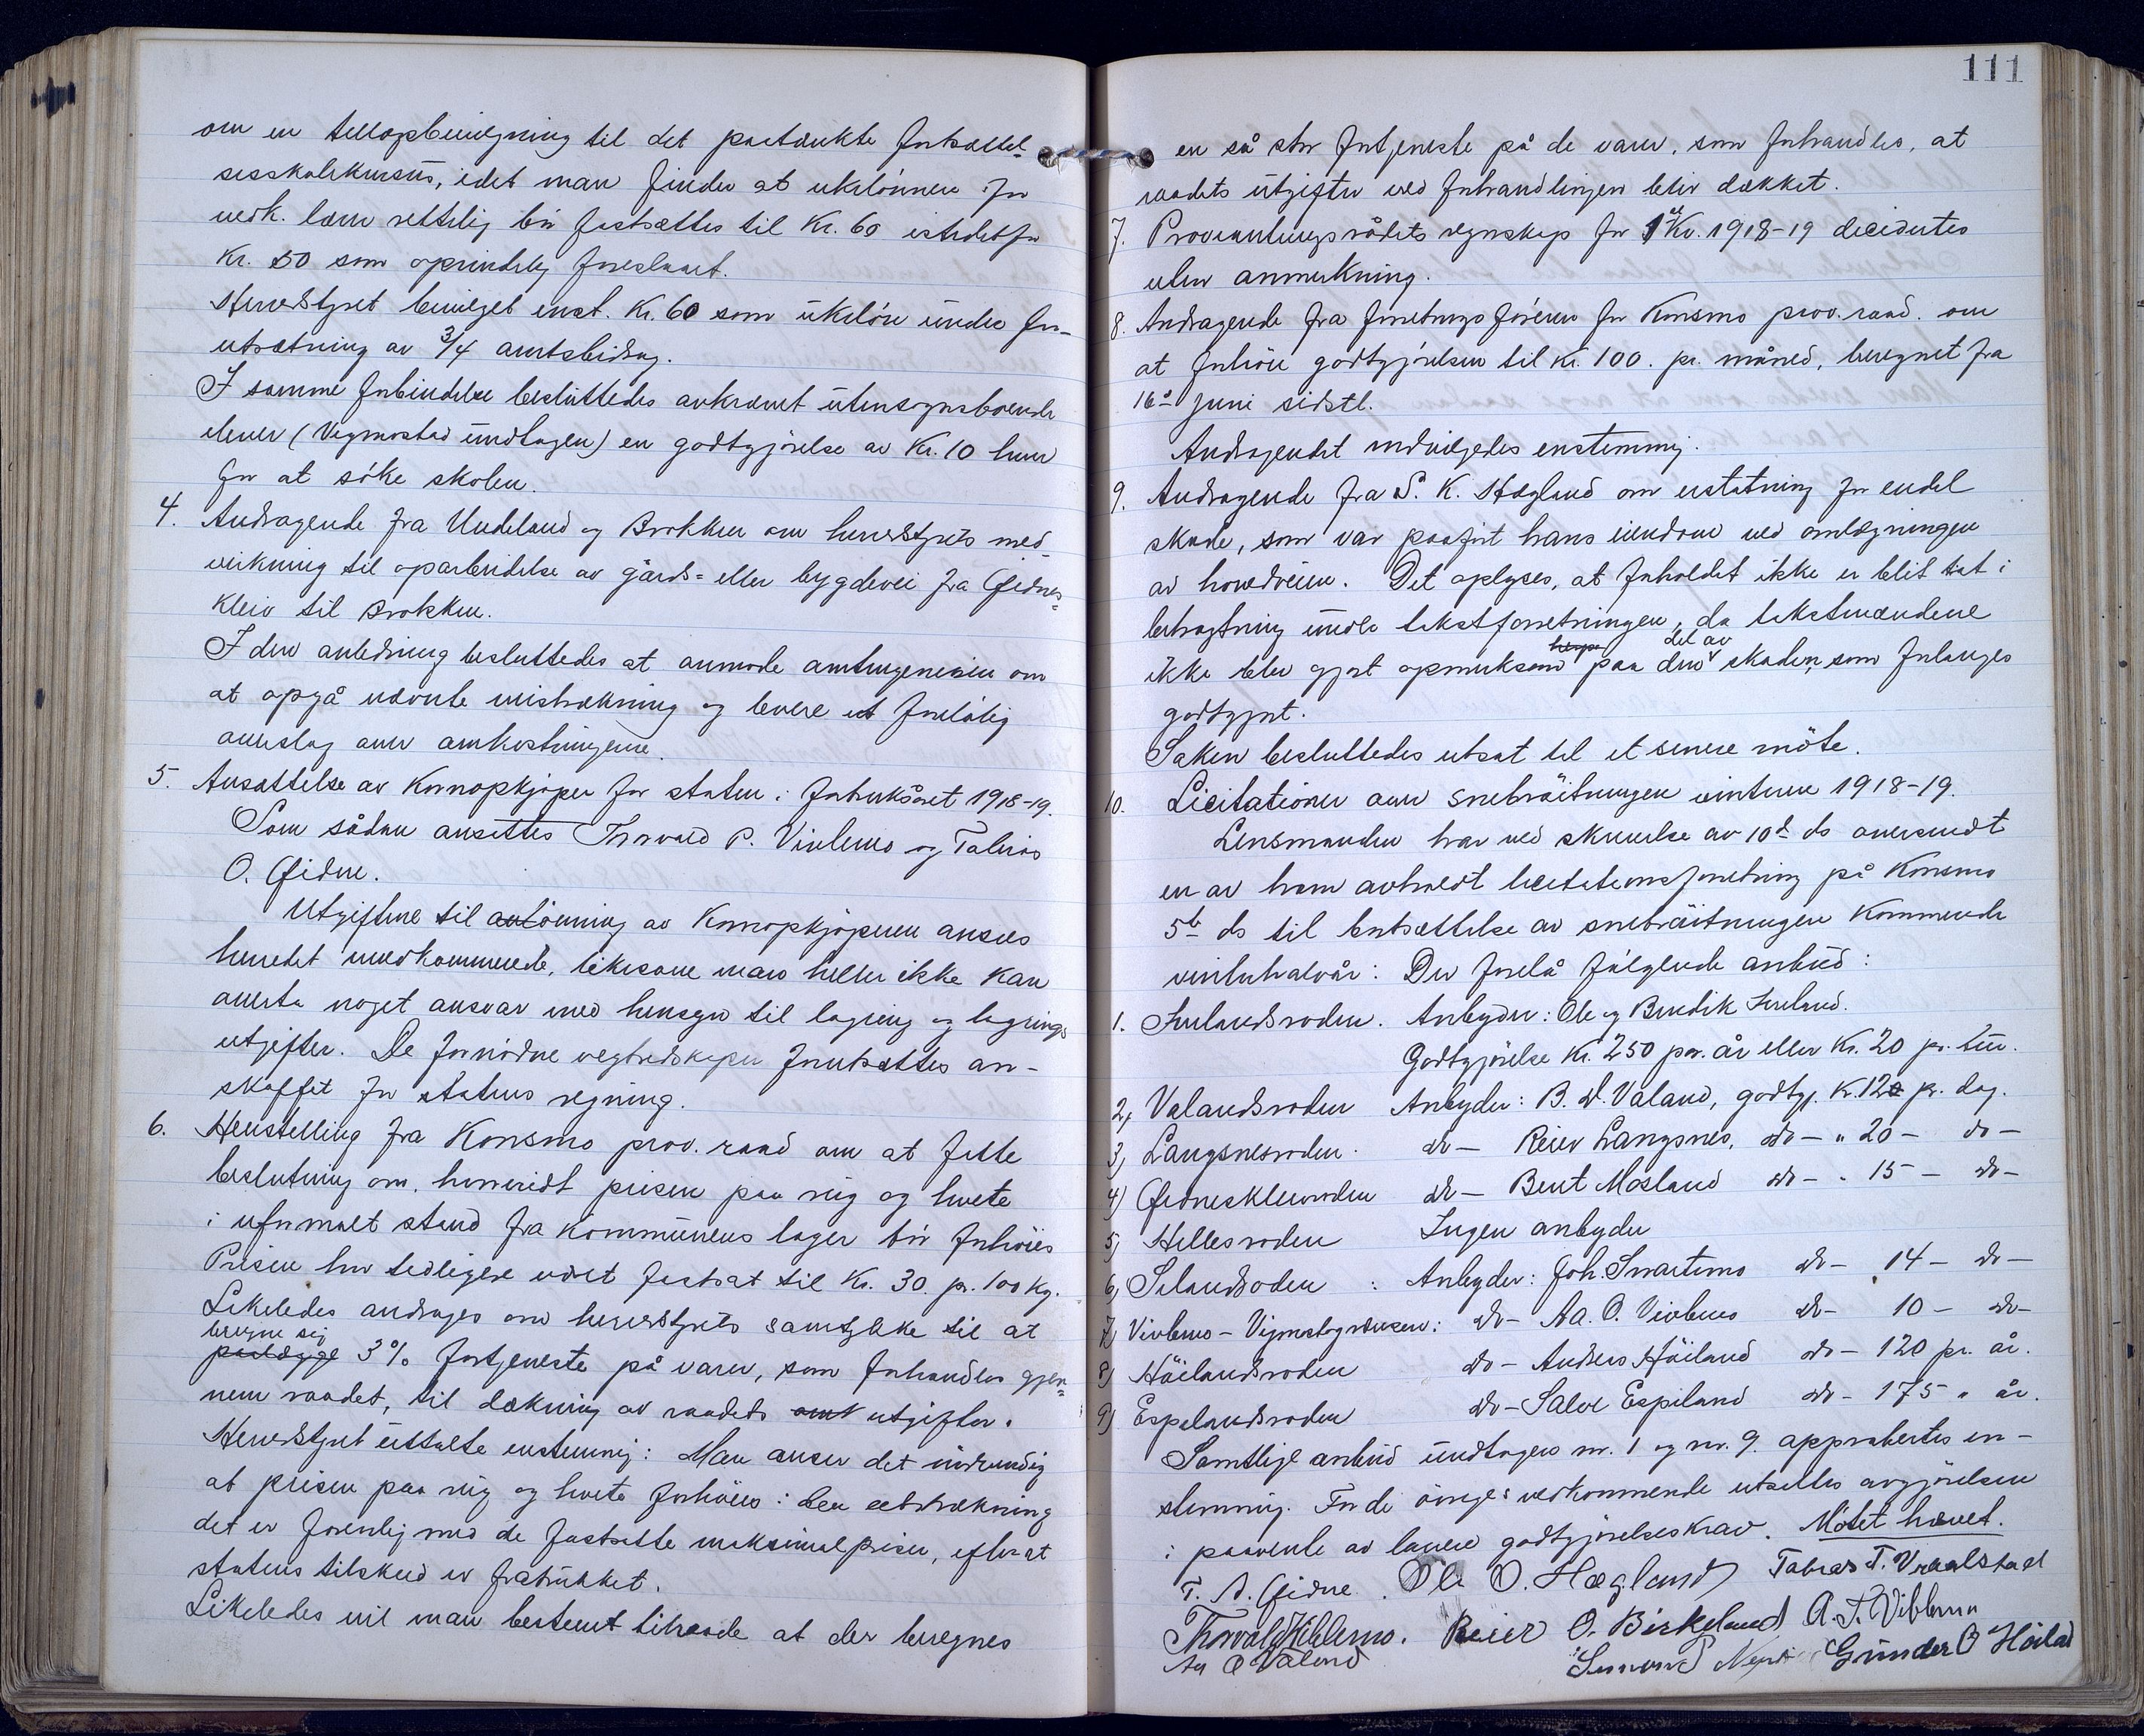 om en tillægsbevilgning til det paatænkte fortsættel-
sesskolekursus, idet man finder at ukelønnen for
vedk. lærer rettelig bør fastsættes til Kr. 60 istedetfor
Kr. 50 som oprindelig foreslaaet.
Herredstyret bevilget enst. Kr. 60 som ukeløn under for-
utsætning av 3/4 amtsbidrag.
I samme forbindelse besluttedes avkrævet utensognsboende
elever (Vigmostad undtagen) en godtgjørelse av Kr. 10 hver
for at søke skolen.
4. Andragende fra Undeland og Brokken om herredstyrets med-
virkning til oparbeidelse av gårds- eller bygdevei fra Gidnes-
kleiv til Brokken.
I den anledning besluttedes at anmode amtingeniøren om
at opgå nævnte veistrækning og levere ut foreløbig
overslag over omkostningerne.
5. Ansættelse av Kornopkjøper for staten i forbruksåret 1918-19.
Som sådan ansættes Thorvald P. Vivlemo og Tobias
O. Gidne.
Utgifterne til avlønning av Kornopkjøperen ansees
herredet uvedkommende, likesom man heller ikke kan
overta noget ansvar med hensyn til lagring og lagrings
utgifter. De fornødne vegtredskaper forutsættes an-
skaffet for statens regning.
6. Henstilling fra Konsmo prov. raad om at fatte
beslutning om, hvorvidt prisen paa rug og hvete
i uformalt stand fra kommunens lager bør forhøies
Prisen har tidligere været fastsat til Kr. 30. pr. 100 kg.
Likeledes andrages om herredstyrets samtykke til at
beregne sig
paalægge 3% fortjeneste på varer, som forhandles gjen-
nem raadet, til dækning av raadets utgifter.
Herredstyret uttalte enstemmig: Man anser det nødvendig
at prisen paa rug og hvete forhøies i den utstrækning
det er forenlig med de fastsatte maksimalpriser, efterat
statens tilskud er fratrukket.
Likeledes vil man bestemt tilraade at der beregnes
111
en så stor fortjeneste på de varer, som forhandles, at
raadets utgifter ved forhandlingen blir dækket.
7. Provianteringsrådets regnskap for 1ste Kv. 1918-19 deciderties
uten anmerkning.
8. Andragende fra forretningsføreren for Konsmo prov. raad. om
at forhøie godtgjørelsen til Kr. 100. pr. måned, beregnet fra
16de juni sidstl.
Andragendet indvilgedes enstemmig.
9. Andragende fra S. K. Hægland om erstatning for endel
skade, som var paaført hans eiendom ved omlægningen
av hovedveien. Det oplyses, at forholdet ikke er blit tat i
betragtning under takstforretningen, da takstmændene
del av
ikke blev gjort opmerksom paa den skaden, som forlanges
godtgjort.
Saken besluttedes utsat til et senere møte.
10. Licitationer over snebrøitningen vinteren 1918-19.
Lensmanden har ved skrivelse av 10d ds oversendt
en av ham avholdt licitationsforretning på Konsmo
5te ds til bortsættelse av snebrøitningen kommende
vinterhalvår: Der forelå følgende anbud:
1. Anbyder: Ole og Bendik
Godtgjørelse Kr. 250 pr. år eller Kr. 20 pr. tur.
2, Valandsroden Anbyder: B. D. Valand, godtgj. Kr. 12 pr. dag.
3, Langsnesroden. do - Reier Langsnes, do - " 20 - do -
4) Gidneskleivroden do - Bent Mosland do - " 15 - do -
5, Hellesroden Ingen anbyder
6, Selandsroden : Anbyder: Joh. Svartemo do - 14 - do -
7, Vivlemo - Vigmostadgrænsen: do - Aa. O. Vivlemo do - 10 - do -
8) Høilandsroden do - Anders Høiland do - 120 pr. år.
9) Espelandsroden do - Salve Espeland do - 175 " år.
Samtlige anbud undtagen nr. 1 og nr. 9. approbertes en-
stemmig. For de øvriges vedkommende utsattes avgjørelsen
i paavente av lavere godtgjørelseskrav. Møtet hævet.
T. A. Gidne. Ole O. Hægland Tobias T. Vraalstad
Thorvald Viblemo. Reier O. Birkeland A. T. Viblemo
Aa O Valand Gunder O Høiland